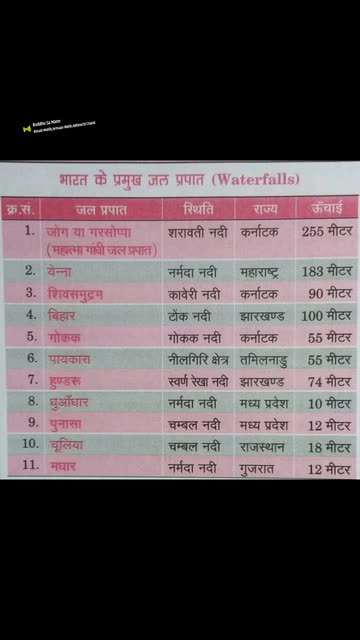 Buddha Sa Mann
भारत के प्रमुख जल प्रपात (Waterfalls)
क्र.सं. जल प्रपात स्थिति राज्य ऊँचाई
1. जोग या गरसोप्पा शरावती नदी कर्नाटक 255 मीटर
(महात्मा गांधी जल प्रपात)
2. येन्ना नर्मदा नदी महाराष्ट्र 183 मीटर
3. शिवसमुद्रम कावेरी नदी कर्नाटक 90 मीटर
4. बिहार टोंक नदी झारखण्ड 100 मीटर
5. गोकक गोकक नदी कर्नाटक 55 मीटर
6. पायकारा नीलगिरि क्षेत्र तमिलनाडु 55 मीटर
7. हुण्डरू स्वर्ण रेखा नदी झारखण्ड 74 मीटर
8. धुआँधार नर्मदा नदी मध्य प्रदेश 10 मीटर
9. पुनासा चम्बल नदी मध्य प्रदेश 12 मीटर
10. चूलिया चम्बल नदी राजस्थान 18 मीटर
11. मधार नर्मदा नदी गुजरात 12 मीटर